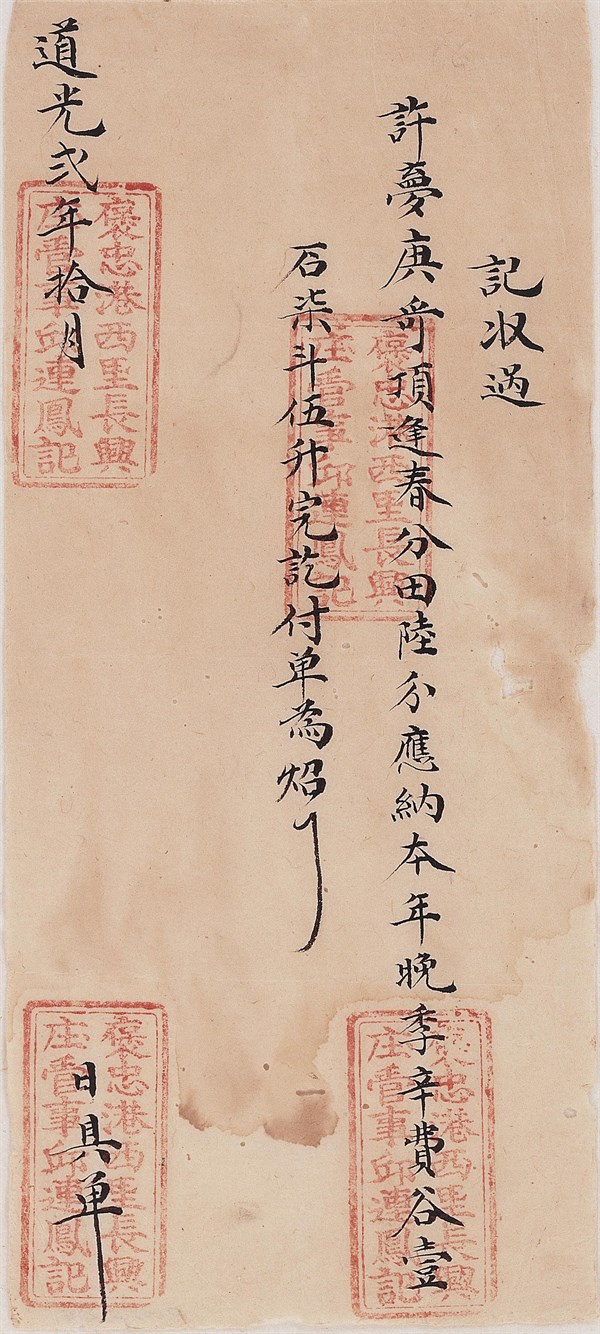 記收過
許夢庚哥項逢春分田陸分應納本年晚季辛費谷壹
石柒斗伍升完訖付单為炤
道光弍年拾月
日具单
褒忠港西里長興
庄管事邱連鳳記
褒忠港西里長興
庄管事邱連鳳記
褒忠港西里長興
庄管事邱連鳳記
褒忠港西里長興
庄管事邱連鳳記